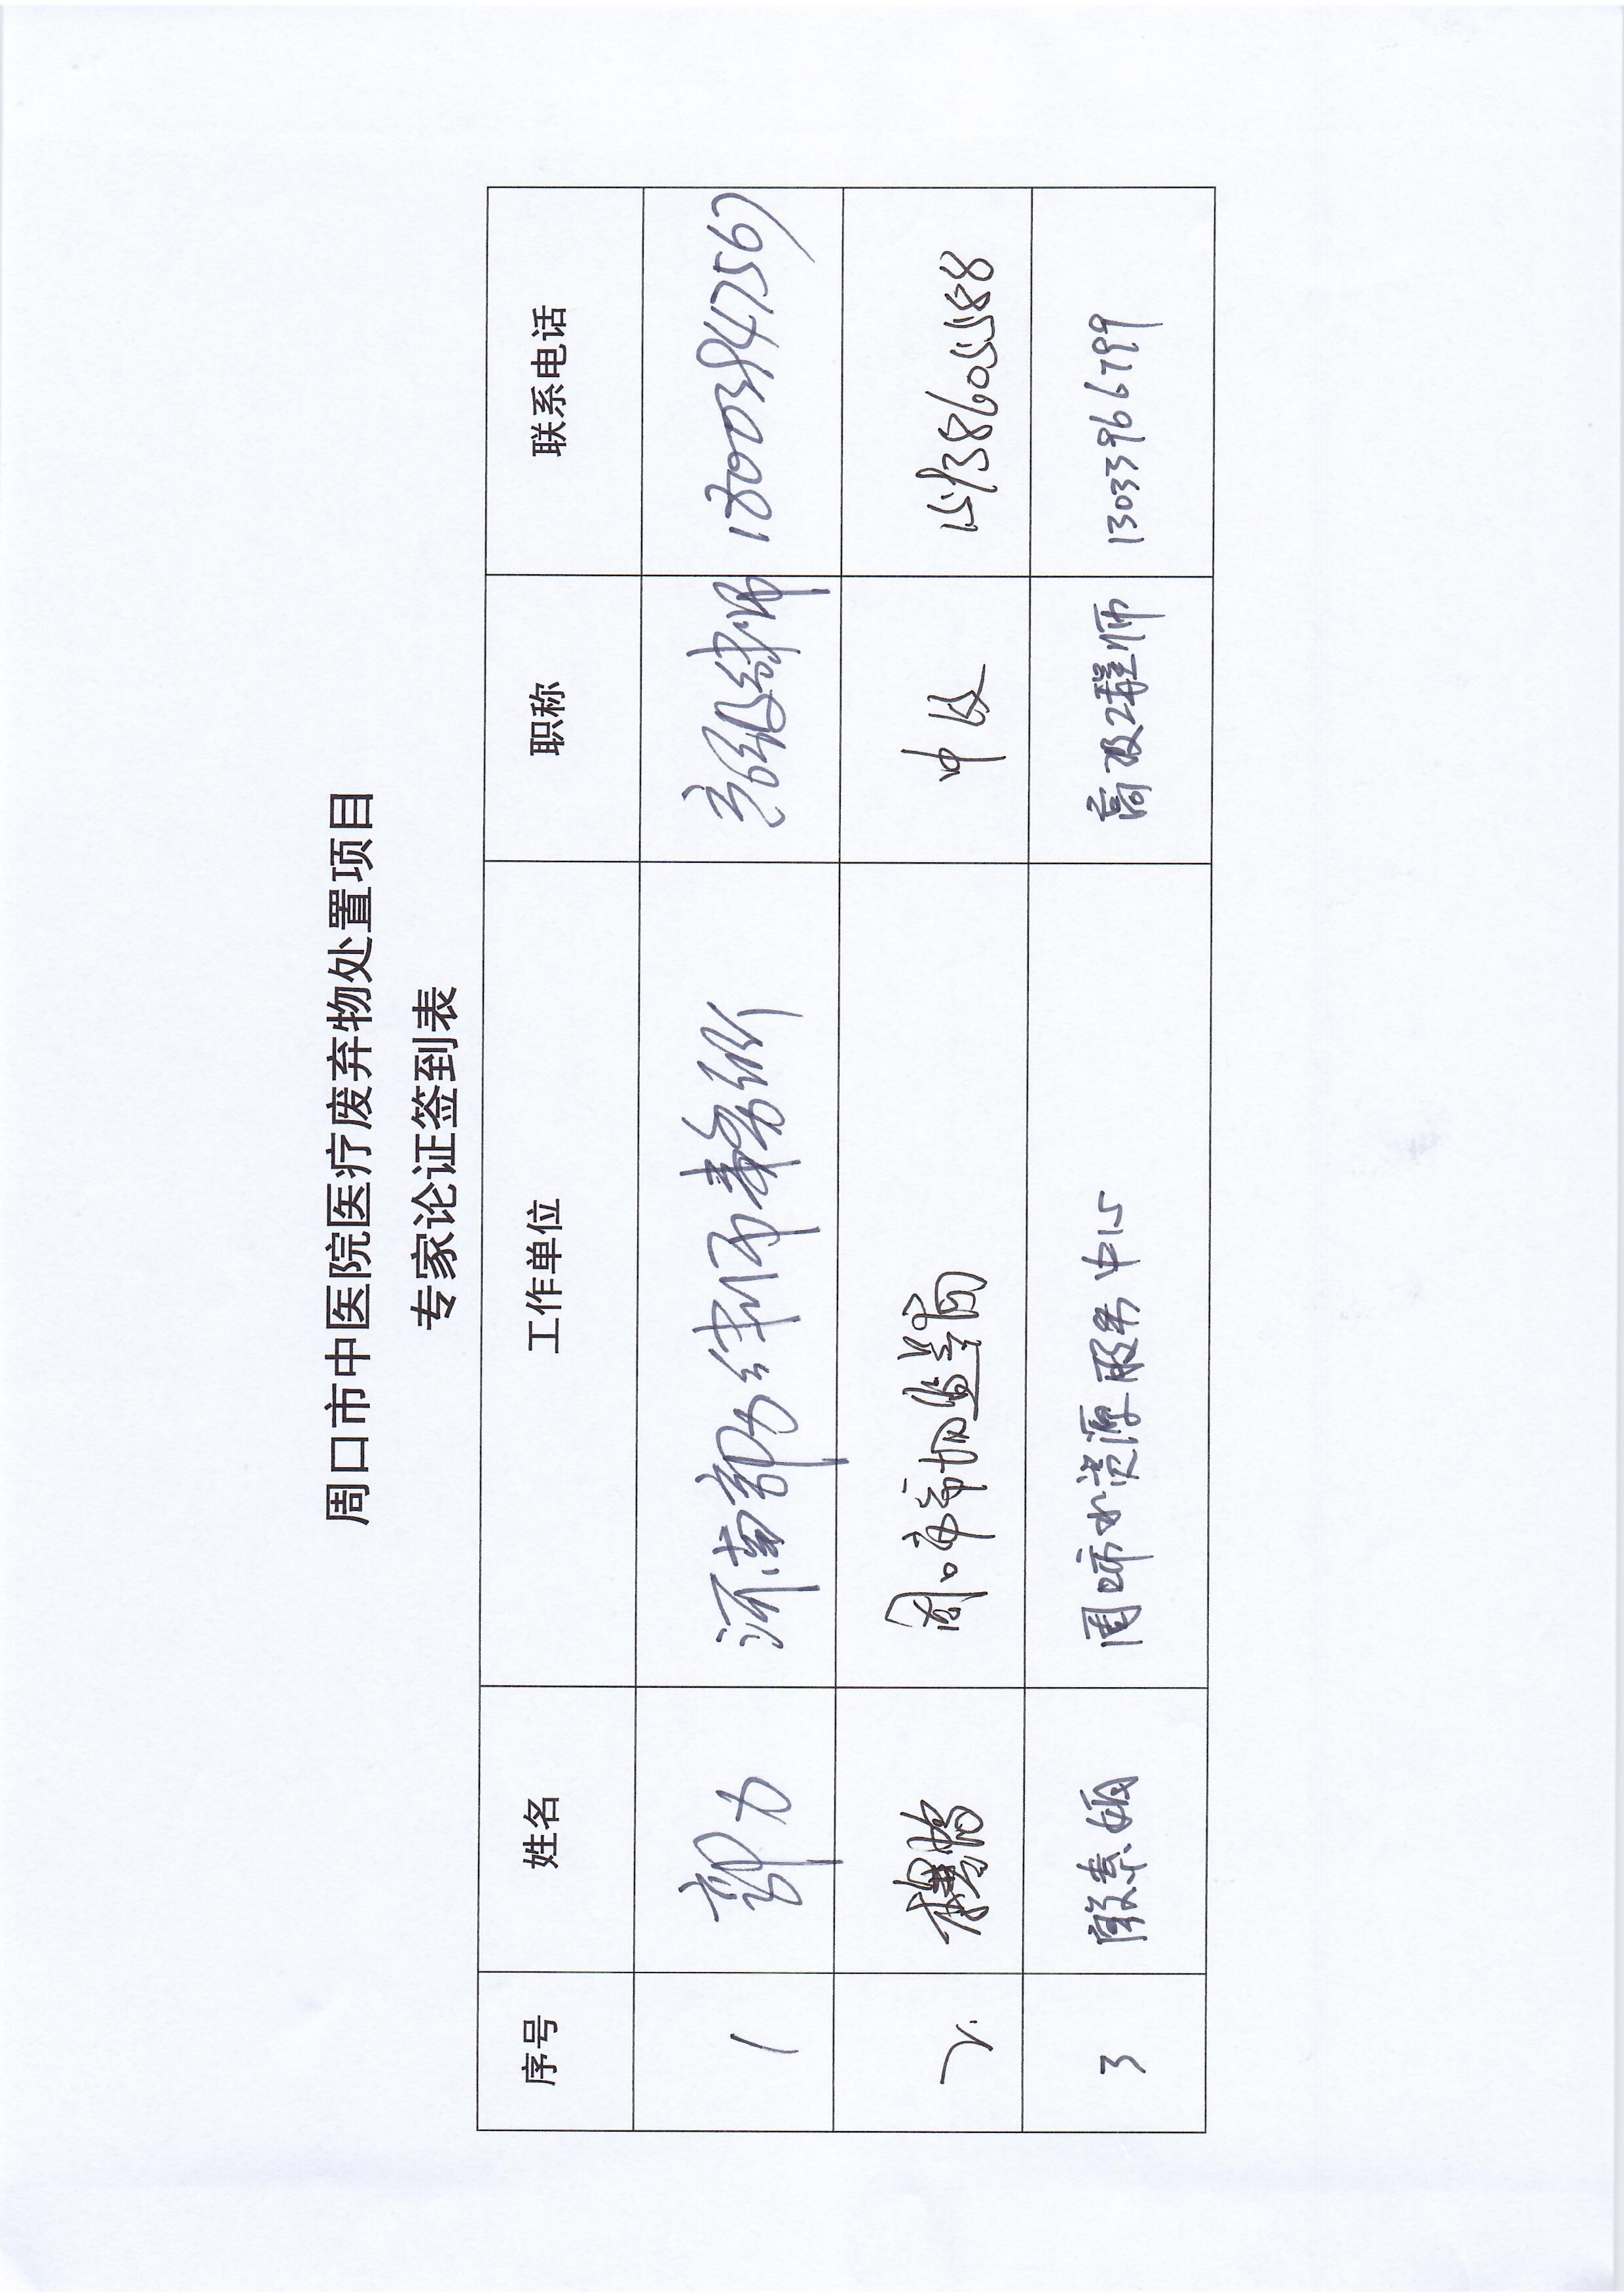 周口市中医院医疗废弃物处置项目
专家论证签到表
序号 姓名 工作单位 职称 联系电话
1 郭力 河南郭力律师事务所 三级律师 18003947567
2. 周口市市场监管局 中级 15938605588
3 殷素娟 周口市水资源服务中心 高级工程师 13033966799